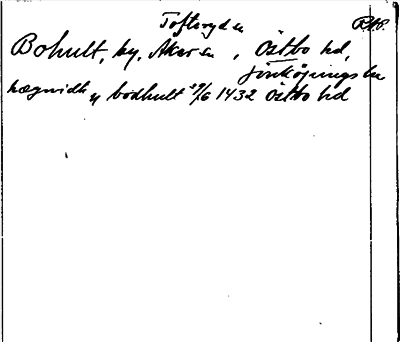 Tofteryd sn RAP.
Bohult, by, Åker sn, Östbo hd,
Jönköpings län
hægnidh y bodhult 29/6 1432 Östbo hd